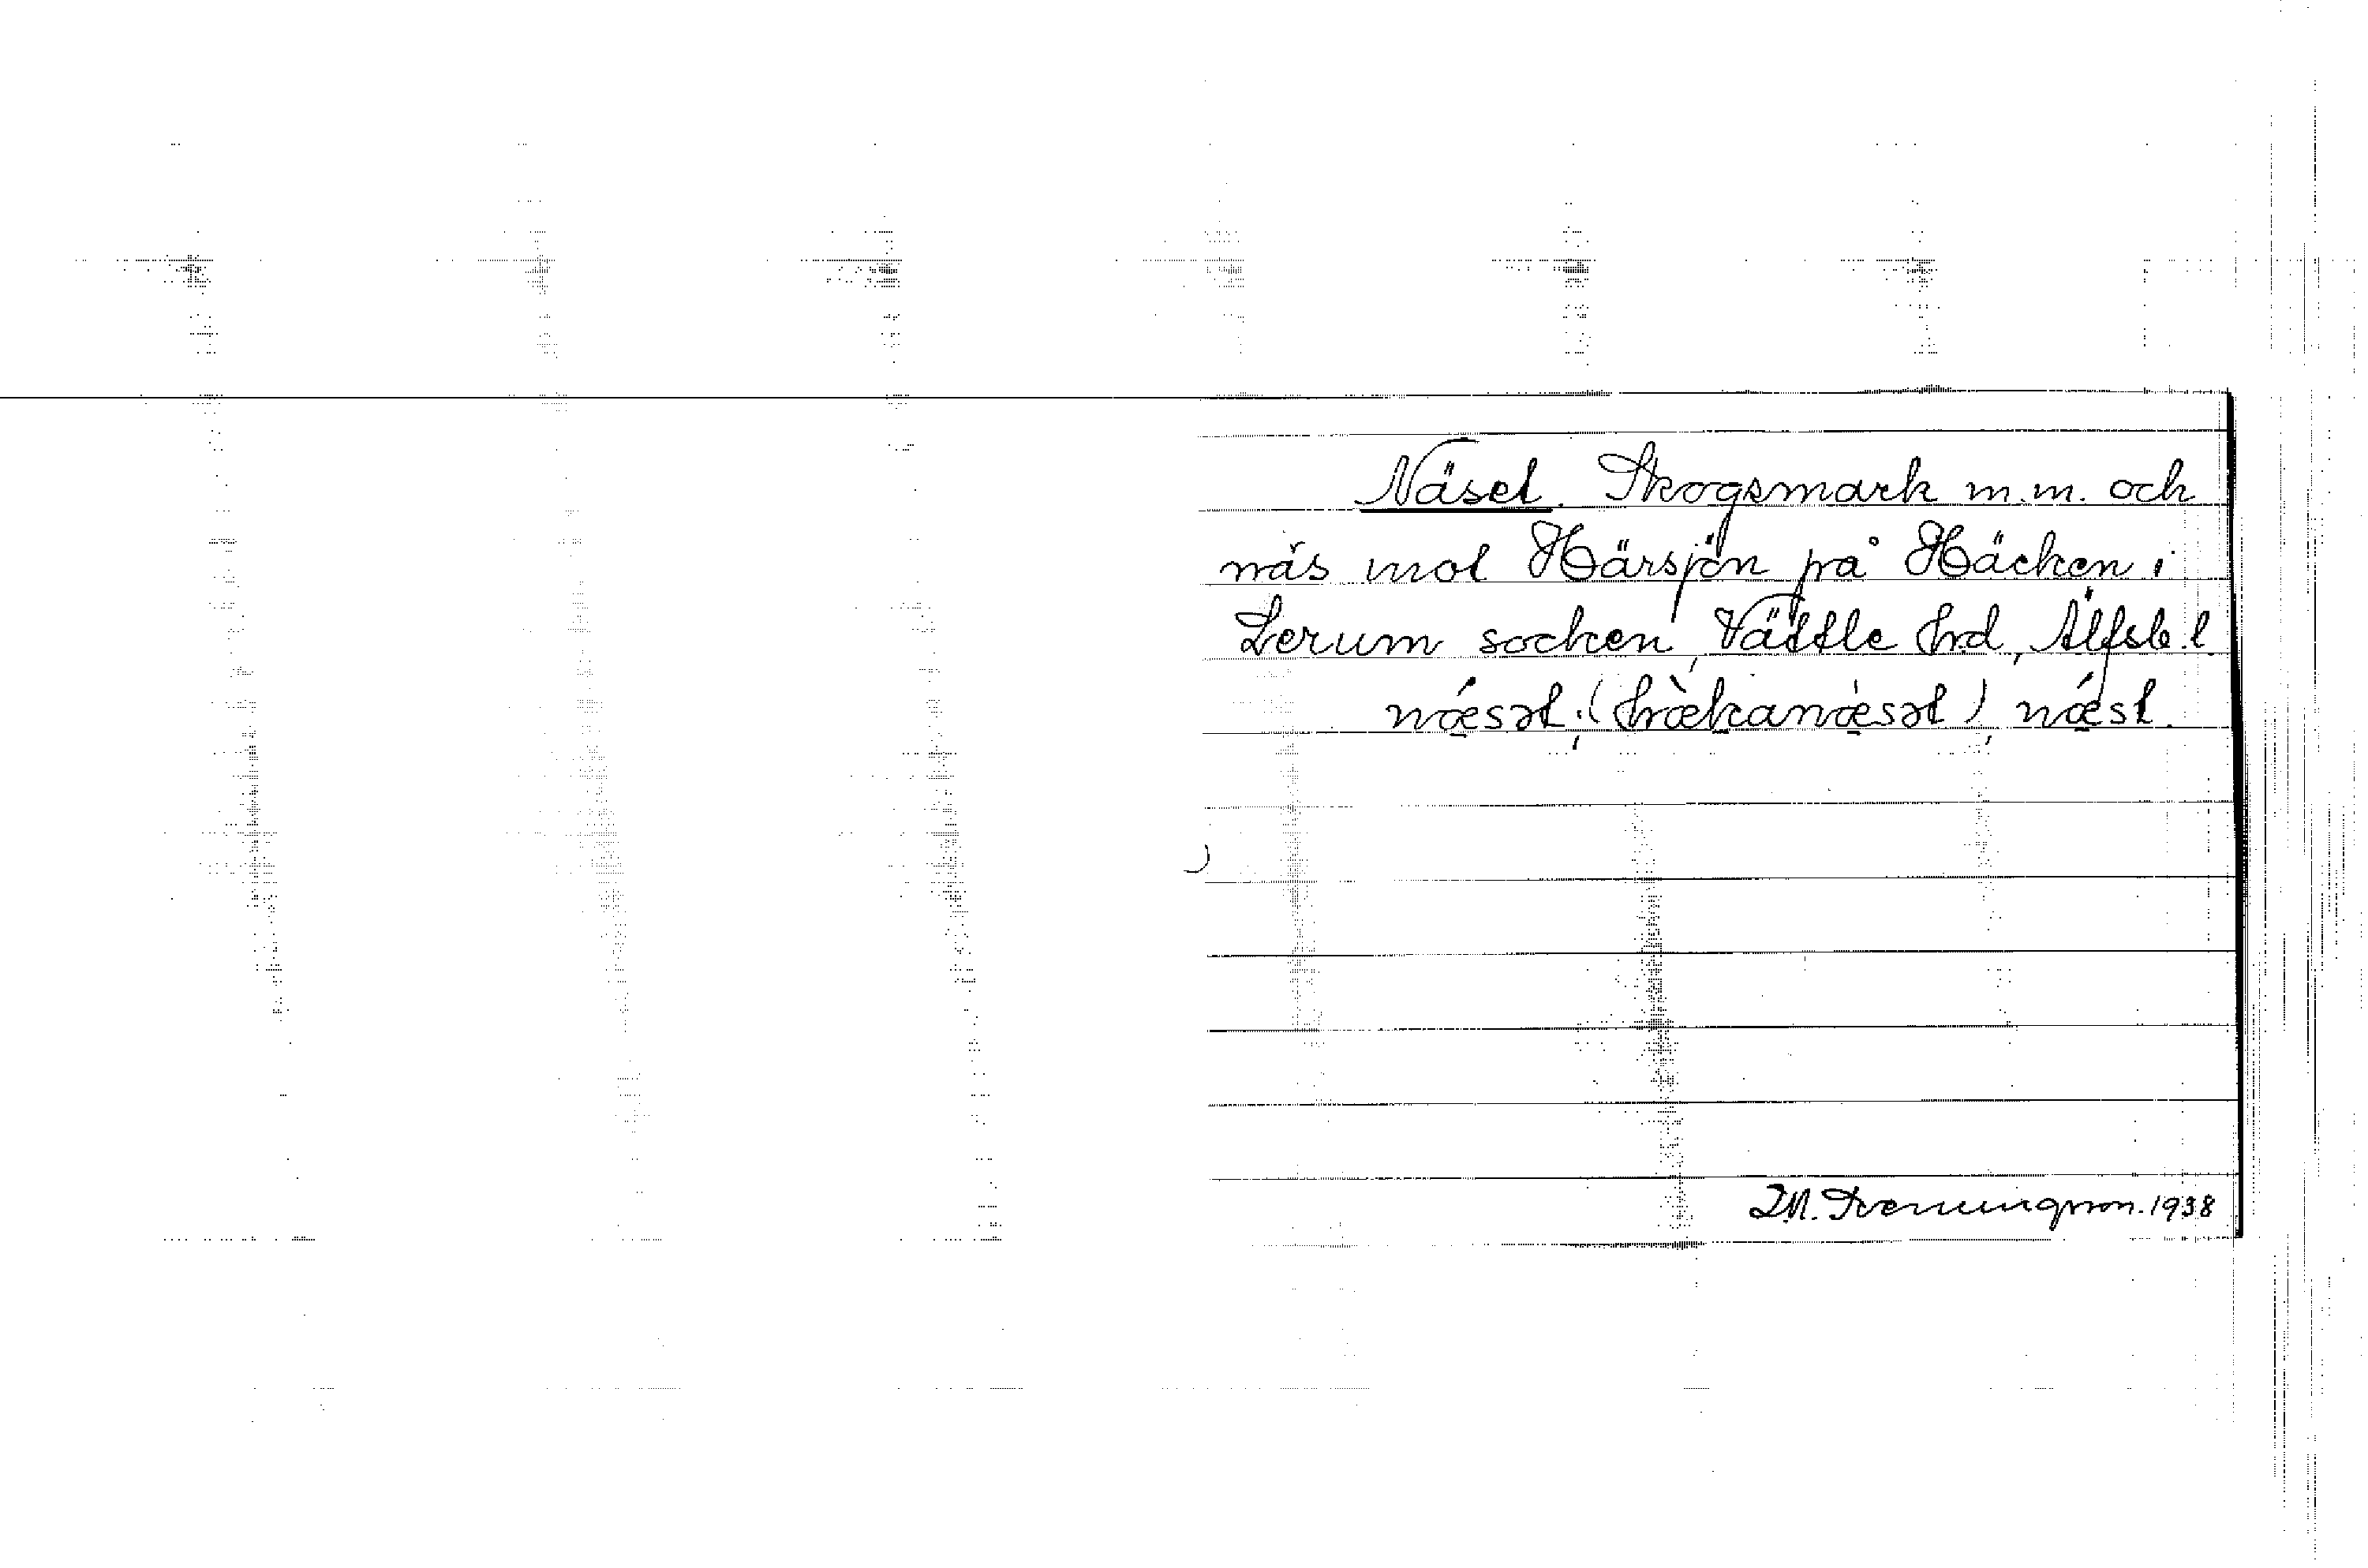 Näset. Skogsmark m.m. och
näs mot Härsjön på Häcken i
Lerum socken, Vättle hrd, Älfsb. l.
næ̀sət; (hæ̀kanæ̀sət), næ̀st.
1938